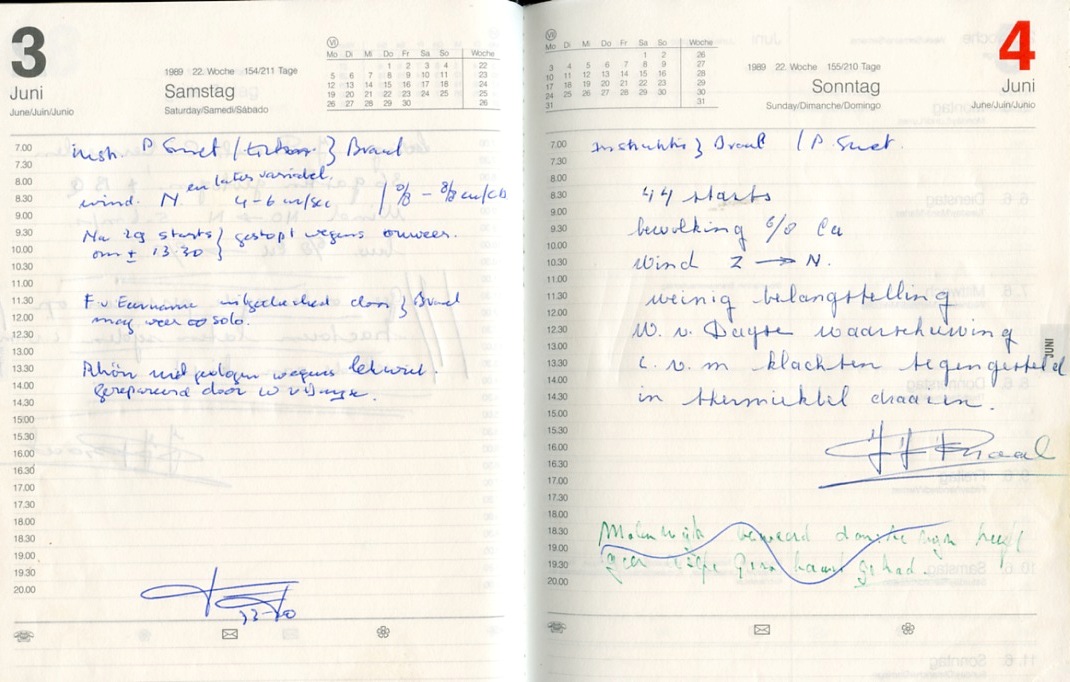 3
Juni
June/Juin/Junio
1989 22. Woche 154/211 Tage
Samstag
Saturday/Samedi/Sábado
VI
Mo Di Mi Do Fr Sa So Woche
1 2 3 4 22
5 6 7 8 9 10 11 23
12 13 14 15 16 17 18 24
19 20 21 22 23 24 25 25
26 27 28 29 30 26
7.00
7.30
8.00
8.30
9.00
9.30
10.00
10.30
11.00
11.30
12.00
12.30
13.00
13.30
14.00
14.30
15.00
15.30
16.00
16.30
17.00
17.30
18.00
18.30
19.00
19.30
20.00
inst. P Smet Braal
en later variabel.
wind. N. 4-6 m/sec
Na 29 starts } gestopt wegens onweer.
om ± 13.30
F. v uitgecheckt door } Braal
mag weer solo.
Rhön niet gevlogen wegens lek wiel.
gerepareerd door W v Duyse.
VII
Mo Di Mi Do Fr Sa So Woche
1 2 26
3 4 5 6 7 8 9 27
10 11 12 13 14 15 16 28
17 18 19 20 21 22 23 29
24 25 26 27 28 29 30 30
31 31
1989 22. Woche 155/210 Tage
Sonntag
Sunday/Dimanche/Domingo
4
Juni
June/Juin/Junio
JUNI
7.00
7.30
8.00
8.30
9.00
9.30
10.00
10.30
11.00
11.30
12.00
12.30
13.00
13.30
14.00
14.30
15.00
15.30
16.00
16.30
17.00
17.30
18.00
18.30
19.00
19.30
20.00
Instruktie } Braal / P. Smet.
44 starts
bewolking 6/8 Cu
wind Z → N.
weinig belangstelling
W. v. Duyse waarschuwing
i. v. m klachten tegengesteld
in thermiekbel draaien.
Braal
Molenwijk beweerd dat hij heeft
geen gehad.